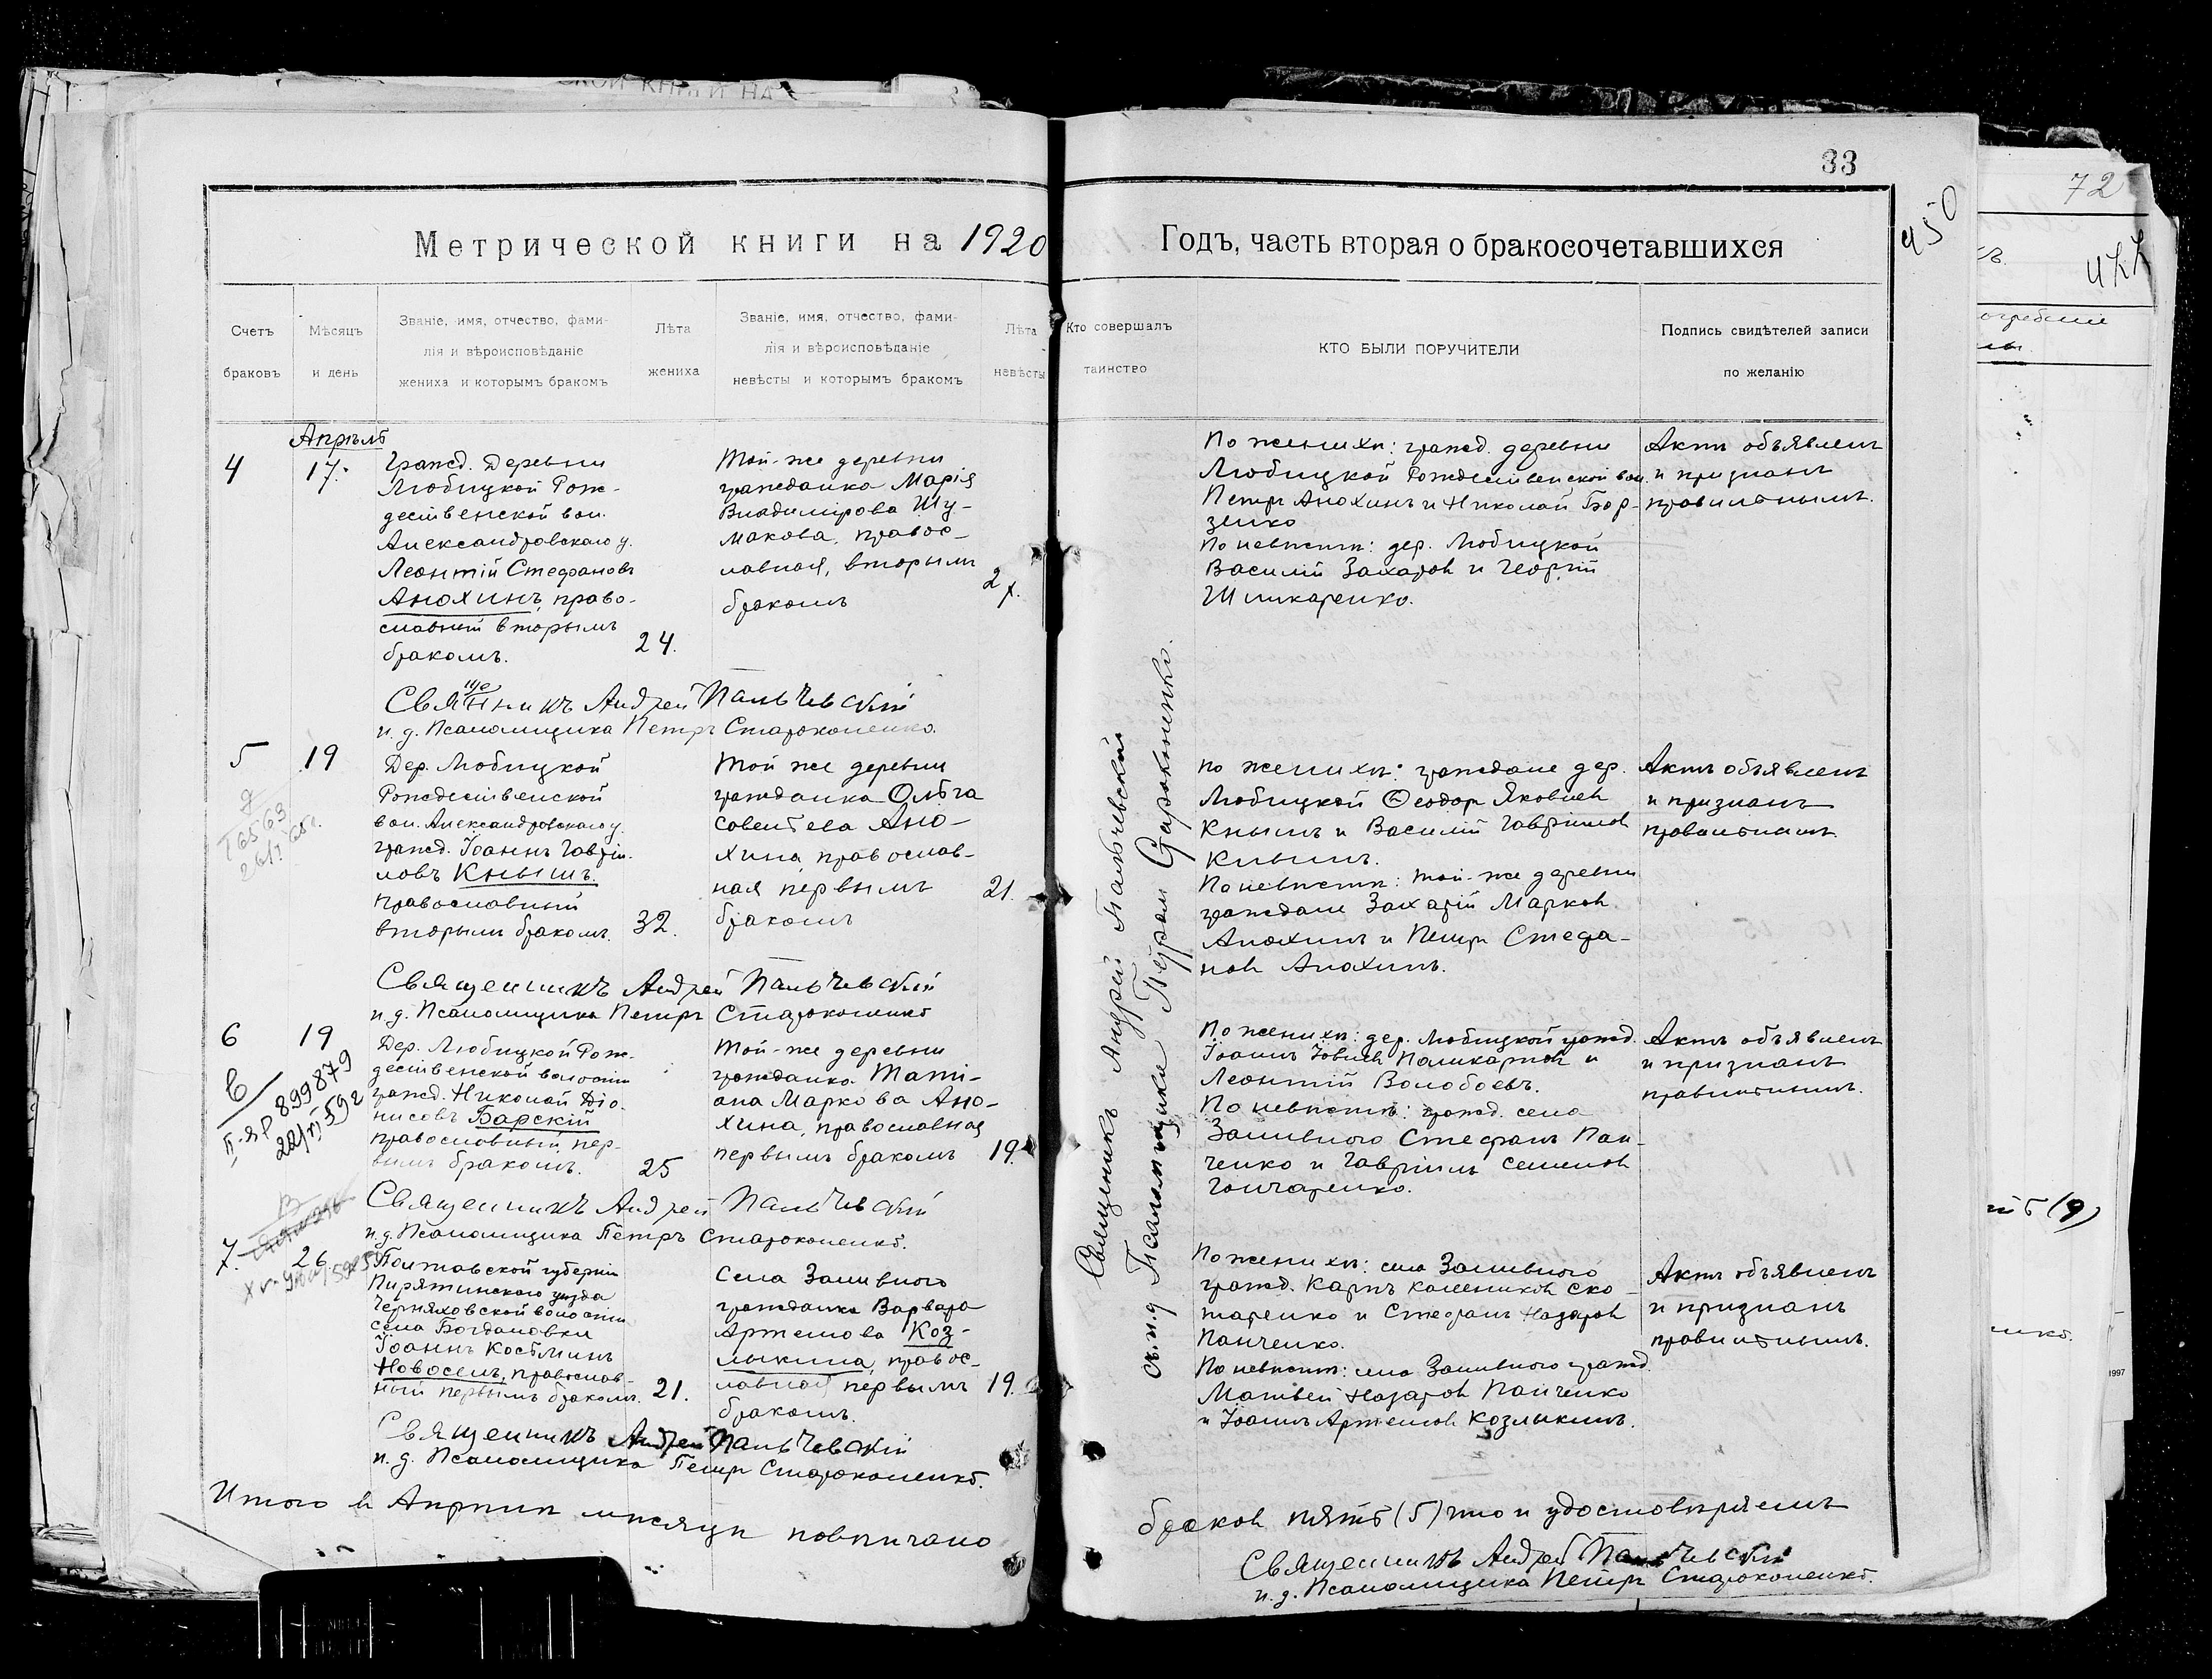 33
72
450
Метрической книги на 1920
Годъ, часть вторая о бракосочетавшихся
Счетъ браковъ
Мѣсяцъ и день
Званіе, имя, отчество, фами-
лія и вѣроисповѣданіе
жениха и которымъ бракомъ
Лѣта жениха
Званіе, имя, отчество, фами-
лія и вѣроисповѣданіе
невѣсты и которымъ бракомъ
Лѣта невѣсты
Кто совершалъ таинство
КТО БЫЛИ ПОРУЧИТЕЛИ
Подпись свидѣтелей записи
по желанію
Апрѣль
4
17.
Гражд. Деревни
Любицкой Рож-
дественской вол.
Александровскаго у.
Леонтій Стефановъ
Анохинъ, право-
славный вторымъ
бракомъ.
24.
Той-же деревни
гражданка Марія
Владимірова Шу-
макова, правос-
лавная, вторымъ
бракомъ
По женихѣ: гражд. деревни
Любицкой Рождественской вол.
Петръ Анохинъ и Николай Бор-
зенко
По невѣстѣ: дер. Любицкой
Василій Захаров и Георгій
Шинкаренко.
Актъ объявленъ
и признанъ
правильнымъ.
Священникъ Андрей Пальчевскій
и. д. Псаломщика Петръ Староконенко.
5
19
Дер. Любицкой
Рождественской
вол. Александровскаго у.
гражд. Іоаннъ Гаврiи-
ловъ Кнышъ.
православный
вторымъ бракомъ.
32.
Той же деревни
гражданка Ольга
Савельева Ано-
хина, православ-
ная первымъ
бракомъ
21.
По женихѣ: граждане дер.
Любицкой Ѳеодор Яковлев
Кнышъ и Василій Гавріилов
Кнышъ.
По невѣстѣ: той-же деревни
граждане Захарій Марков
Анохинъ и Петръ Стефа-
нов Анохинъ.
Актъ объявленъ
и признанъ
правильнымъ
Священникъ Андрей Пальчевскій
и. д. Псаломщика Петръ Староконенко
6
19
899879
Дер. Любицкой Рож-
дественской волости
гражд. Николай Діо-
нисовъ Барскій
православный, пер-
вымъ бракомъ.
25
Той-же деревни
гражданка Таті-
ана Маркова Ано-
хина, православная
первымъ бракомъ
19.
По женихѣ: дер. Любицкой гражд.
Іоаннъ Іовлев Поликарпов и
Леонтій Волобоевъ.
По невѣстѣ: гражд. села
Заливного Стефанъ Пан-
ченко и Гавріилъ Семенов
Гончаренко.
Актъ объявленъ
и признанъ
правильнымъ.
Священникъ Андрей Пальчевскій
и. д. Псаломщика Петръ Староконенко.
7.
26.
Полтавской губерніи
Пирятинскаго уѣзда
Черняховской волости
села Богдановки
Іоаннъ Косьминъ
Новоселъ, православ-
ный первымъ бракомъ.
21.
Села Заливного
гражданка Варвара
Артемова Коз-
лыкина, правос-
лавная первымъ
бракомъ.
19.
По женихѣ: села Заливного
гражд. Карпъ Калеников Ско-
таренко и Стефанъ Назаров
Панченко.
По невѣстѣ: села Заливного гражд.
Матвей Назаров Панченко
и Іоаннъ Артемов Козлыкинъ.
Актъ объявленъ
и признанъ
правильнымъ.
Священникъ Андрей Пальчевскій
и. д. Псаломщика Петръ Староконенко.
Священникъ Андрей Пальчевскій
и. д. Псаломщика Петром Староконенко.
Итого в Апрѣлѣ мѣсяцѣ повѣнчано
браков пять (5) что и удостовѣряемъ
Священникъ Андрей Пальчевскій
и. д. Псаломщика Петръ Староконенко.
1997